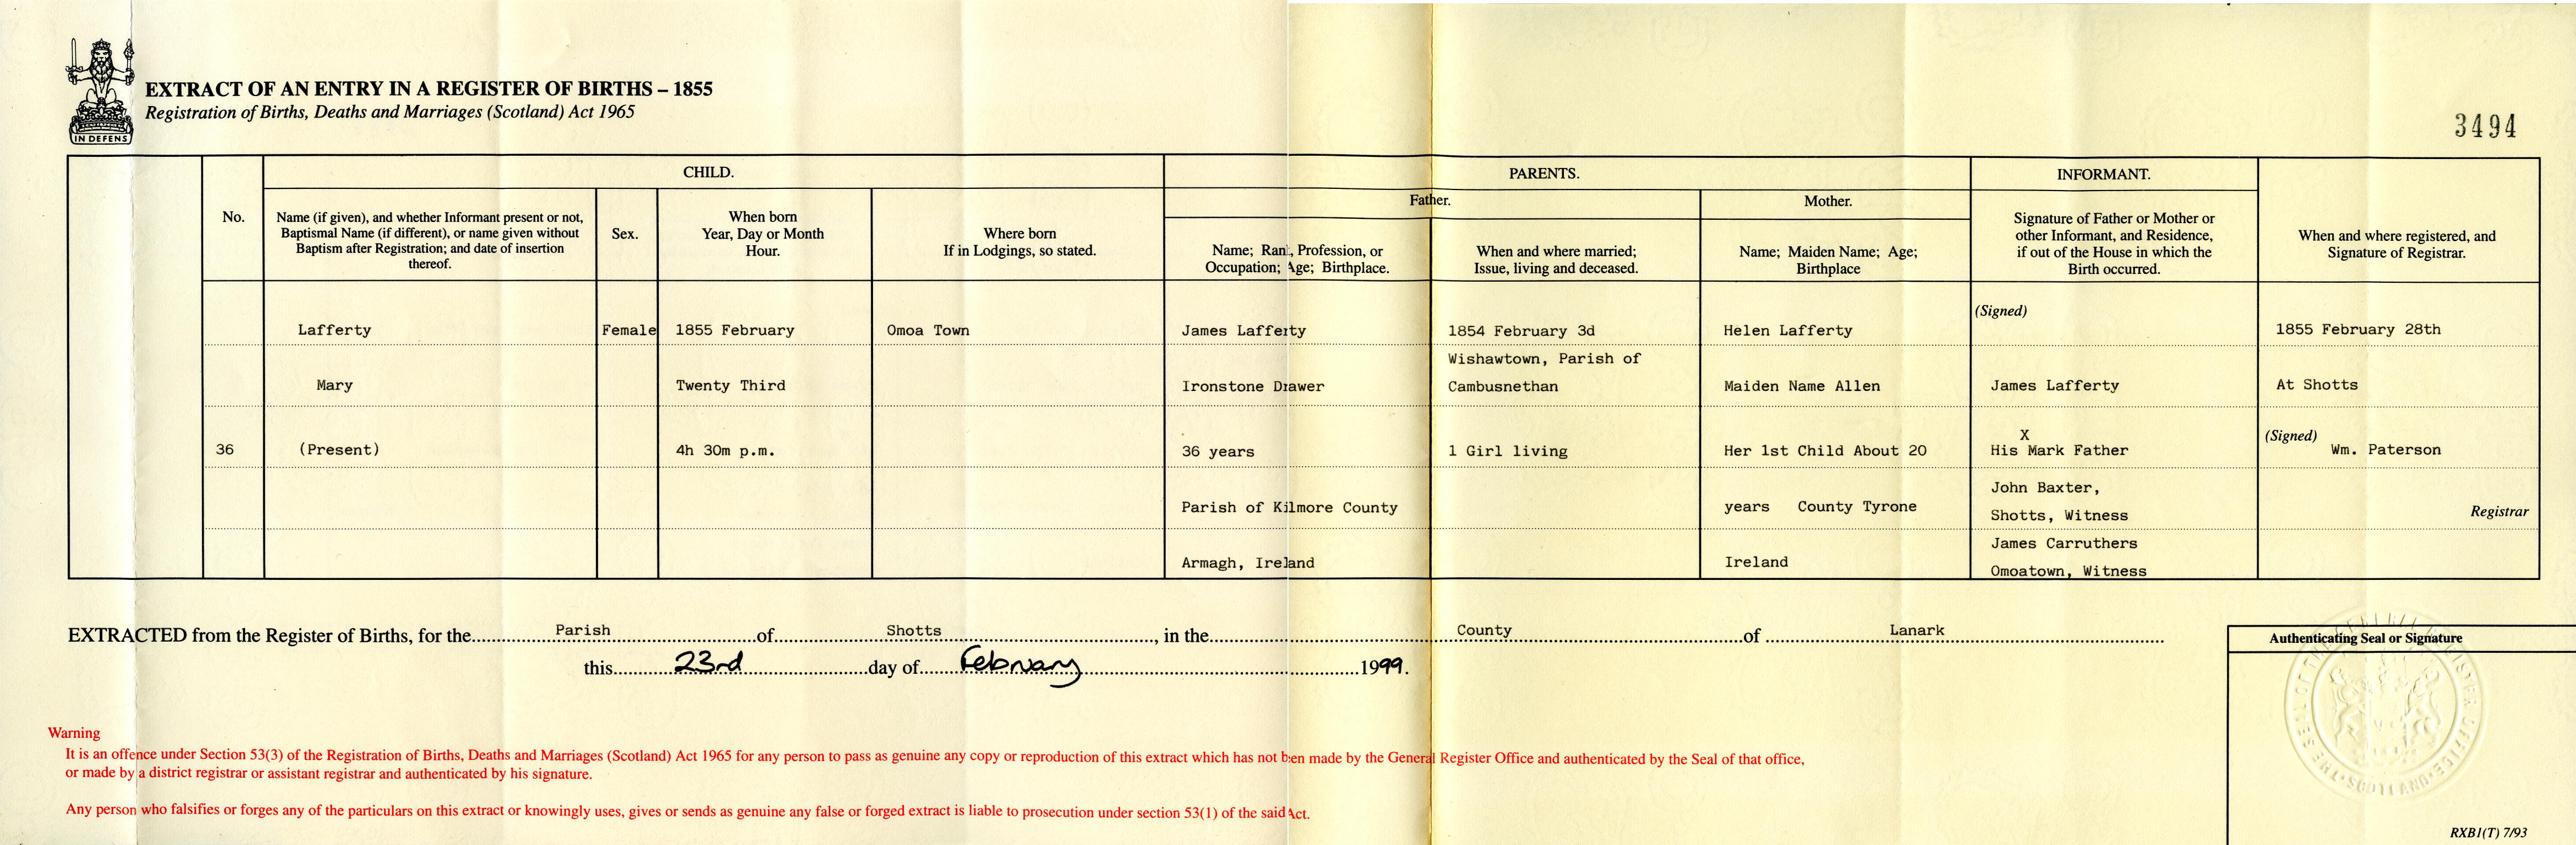 IN DEFENS
EXTRACT OF AN ENTRY IN A REGISTER OF BIRTHS – 1855
Registration of Births, Deaths and Marriages (Scotland) Act 1965
3494
No.
CHILD.
Name (if given), and whether Informant present or not,
Baptismal Name (if different), or name given without
Baptism after Registration; and date of insertion
thereof.
Sex.
When born
Year, Day or Month
Hour.
Where born
If in Lodgings, so stated.
PARENTS.
Father.
Name; Rank, Profession, or
Occupation; Age; Birthplace.
When and where married;
Issue, living and deceased.
Mother.
Name; Maiden Name; Age;
Birthplace
INFORMANT.
Signature of Father or Mother or
other Informant, and Residence,
if out of the House in which the
Birth occurred.
When and where registered, and
Signature of Registrar.
36
Lafferty
Mary
(Present)
Female
1855 February
Twenty Third
4h 30m p.m.
Omoa Town
James Lafferty
Ironstone Drawer
36 years
Parish of Kilmore County
Armagh, Ireland
1854 February 3d
Wishawtown, Parish of
Cambusnethan
1 Girl living
Helen Lafferty
Maiden Name Allen
Her 1st Child About 20
years County Tyrone
Ireland
(Signed)
James Lafferty
X
His Mark Father
John Baxter,
Shotts, Witness
James Carruthers
Omoatown, Witness
1855 February 28th
At Shotts
(Signed) Wm. Paterson
Registrar
EXTRACTED from the Register of Births, for the Parish of Shotts, in the County of Lanark
this 23rd day of February 1999.
Authenticating Seal or Signature
Warning
It is an offence under Section 53(3) of the Registration of Births, Deaths and Marriages (Scotland) Act 1965 for any person to pass as genuine any copy or reproduction of this extract which has not been made by the General Register Office and authenticated by the Seal of that office,
or made by a district registrar or assistant registrar and authenticated by his signature.
Any person who falsifies or forges any of the particulars on this extract or knowingly uses, gives or sends as genuine any false or forged extract is liable to prosecution under section 53(1) of the said Act.
THE SEAL OF THE GENERAL REGISTER OFFICE
SCOTLAND
RXB1(T) 7/93